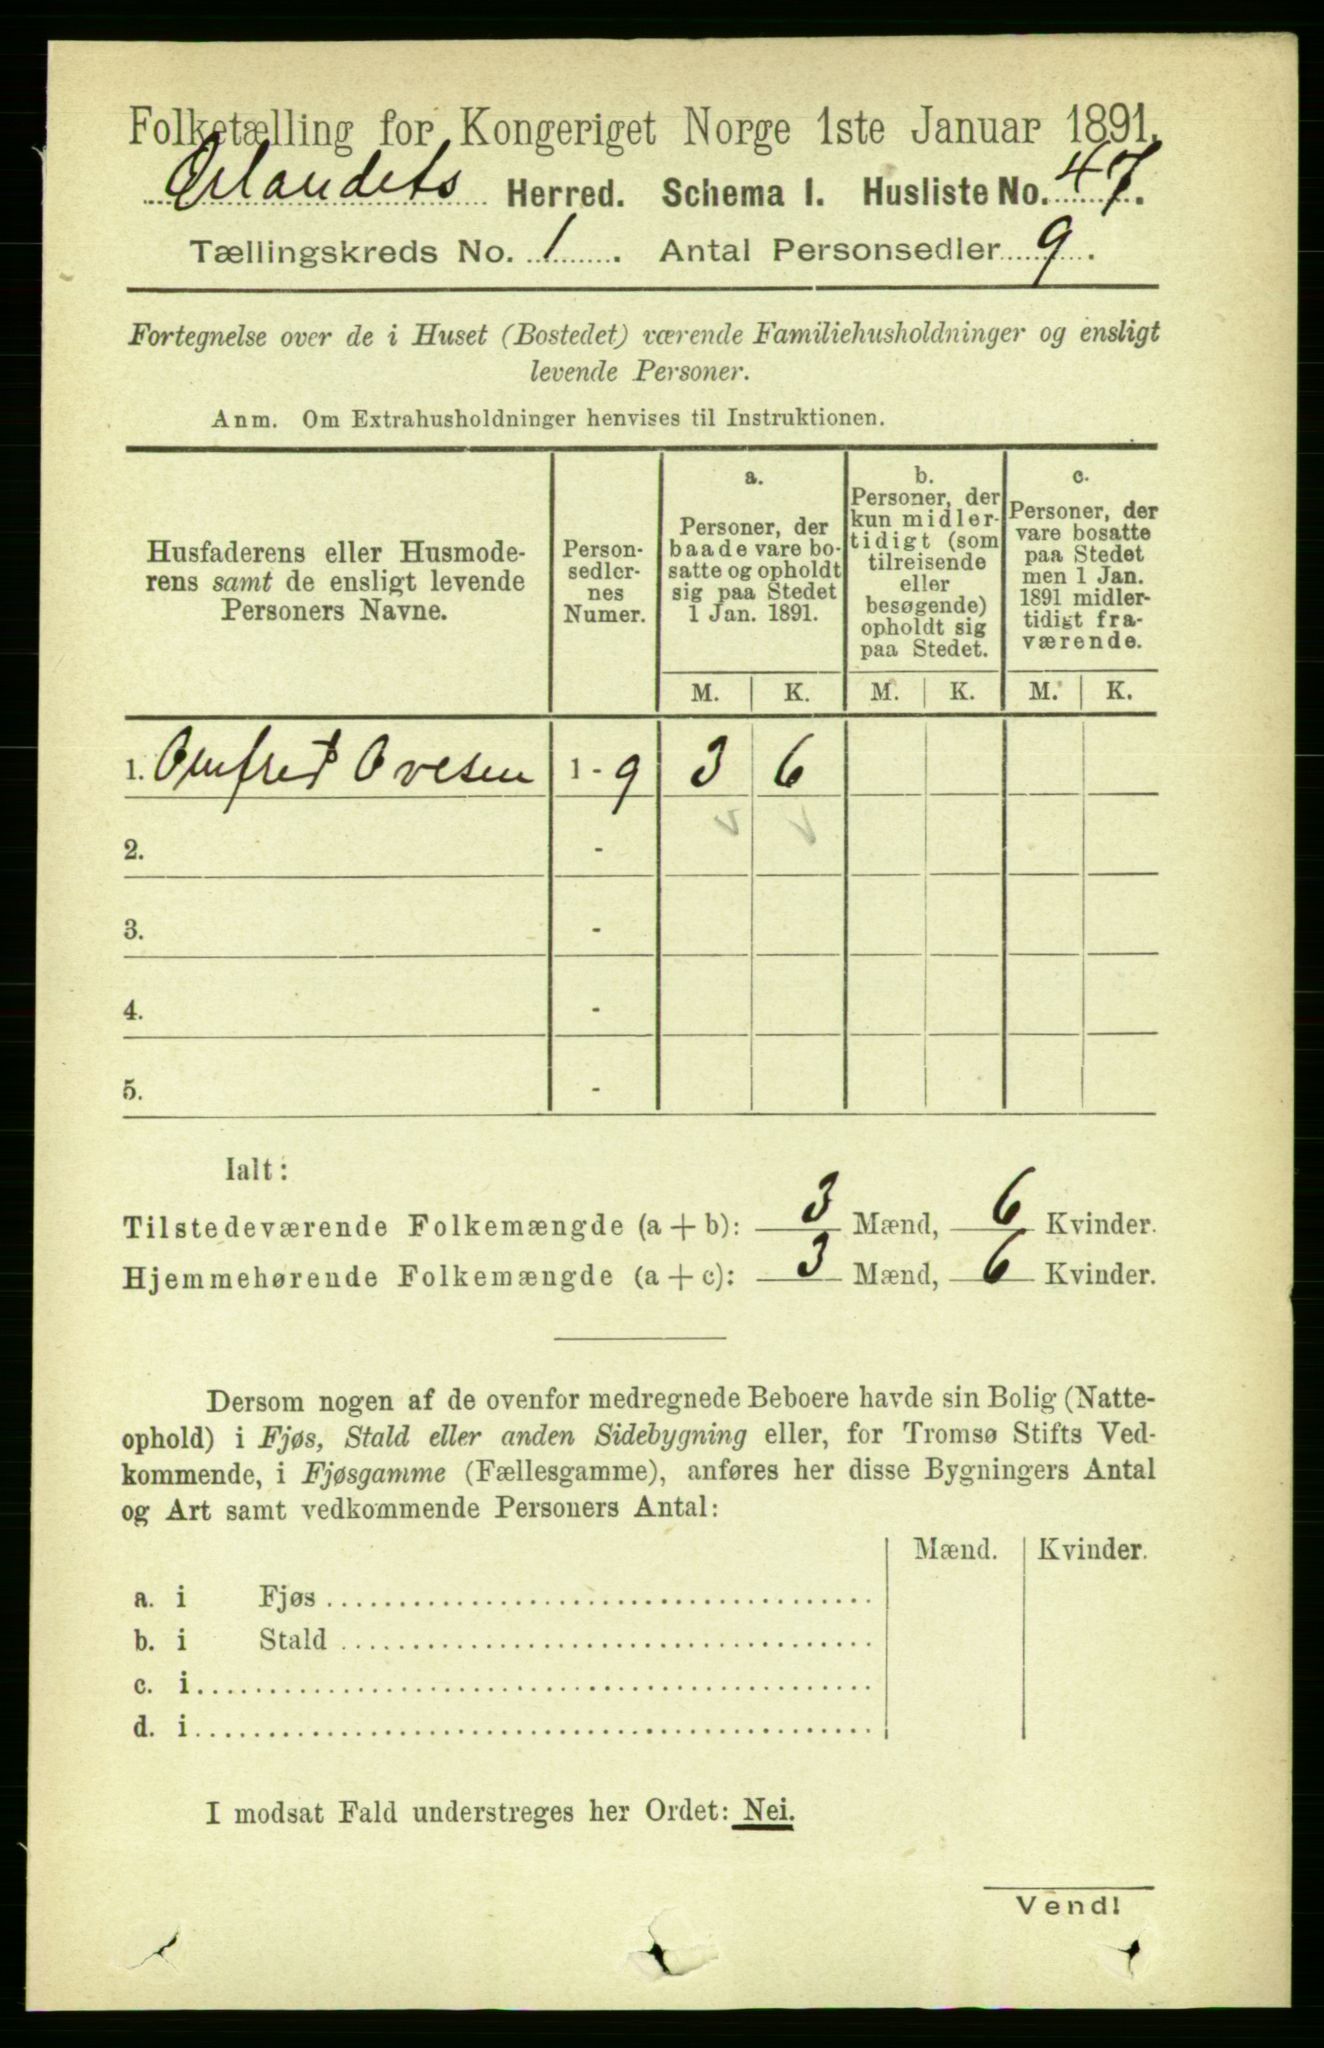 Folketælling for Kongeriget Norge 1ste Januar 1891.
Ørlandets Herred. Schema I. Husliste No. 47.
Tællingskreds No. 1. Antal Personsedler 9.
Fortegnelse over de i Huset (Bostedet) værende Familiehusholdninger og ensligt
levende Personer.
Anm. Om Extrahusholdninger henvises til Instruktionen.
Husfaderens eller Husmode-
rens samt de ensligt levende
Personers Navne.
Person-
sedler-
nes
Numer.
a.
Personer, der
baade vare bo-
satte og opholdt
sig paa Stedet
1 Jan. 1891.
b.
Personer, der
kun midler-
tidigt (som
tilreisende
eller
besøgende)
opholdt sig
paa Stedet.
c.
Personer, der
vare bosatte
paa Stedet
men 1 Jan.
1891 midler-
tidigt fra-
værende.
M. K. M. K. M. K.
1. Ovesen 1 - 9 3 6
2. -
3. -
4. -
5. -
Ialt:
Tilstedeværende Folkemængde (a + b): 3 Mænd, 6 Kvinder.
Hjemmehørende Folkemængde (a + c): 3 Mænd, 6 Kvinder.
Dersom nogen af de ovenfor medregnede Beboere havde sin Bolig (Natte-
ophold) i Fjøs, Stald eller anden Sidebygning eller, for Tromsø Stifts Ved-
kommende, i Fjøsgamme (Fællesgamme), anføres her disse Bygningers Antal
og Art samt vedkommende Personers Antal:
Mænd. Kvinder.
a. i Fjøs
b. i Stald
c. i
d. i
I modsat Fald understreges her Ordet: Nei.
Vend!